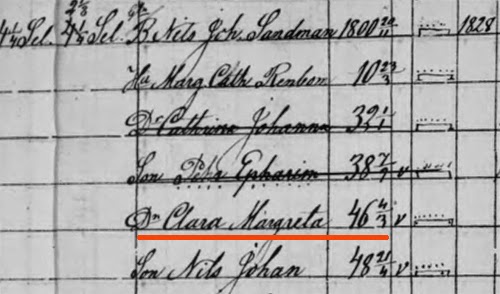 4¼ Sel. 4¼ Sel. B Nils Joh. Sandman 1800 20/11 1828
Hu Marg Cath Renbom 10 23/3
Dr Cathrina Johanna 39 1/1
Son Pehr Ephraim 38 7/9 v
Dr Clara Margreta 46 4/3 v
Son Nils Johan 48 21/4 v